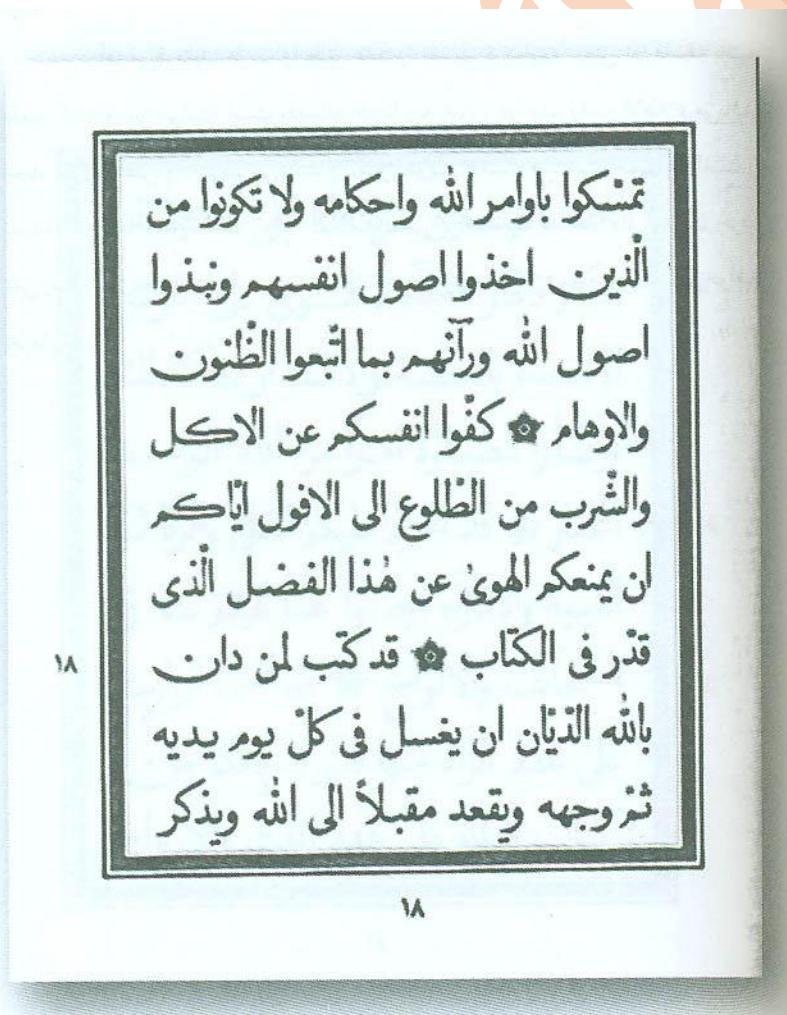 تمسّكوا باوامر اللّه واحكامه ولا تكونوا من
الّذين اخذوا اصول انفسهم ونبذوا
اصول اللّه ورآئهم بما اتّبعوا الظّنون
والاوهام ۞ كفّوا انفسكم عن الاكل
والشّرب من الطّلوع الى الافول ايّاكم
ان يمنعكم الهوىٰ عن هٰذا الفضل الّذى
قدّر فى الكتاب ۞ قد كتب لمن دان
١٨
باللّه الدّيّان ان يغسل فى كلّ يوم يديه
ثمّ وجهه ويقعد مقبلاً الى اللّه ويذكر
١٨